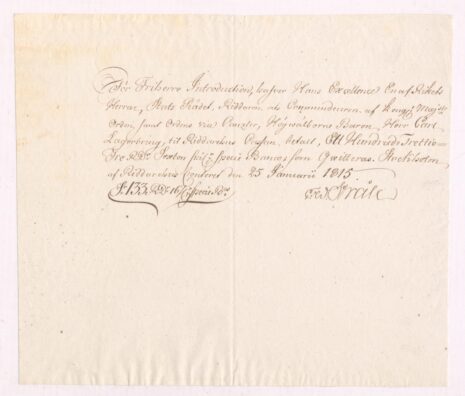 För Friherre Introduction, hafver Hans Excellence En af Rikets
Herrar, Stats Rådet, Riddaren och Commendeuren af Kongl. Maj:ts
Orden, samt Ordens vice Canzler, Högvälborne Baron Herr Carl
Lagerbring, til Riddarehus Cassan, betalt, Ett Hundrade Trettio-
Tre R:dr Sexton sk: Specie Banco; som Qvitteras. Stockholm
af Riddarehus Contoret den 25 Januarii 1815.
133 16 Stråle